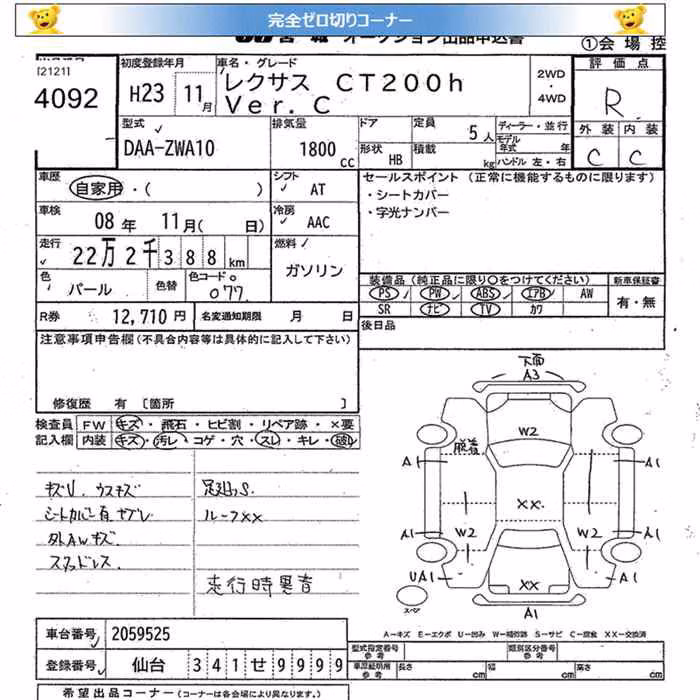 完全ゼロ切りコーナー
オークション出品申込書
①会場控
[2121]
4092
初度登録年月
H23 11月
車名・グレード
レクサス CT200h
Ver. C
2WD
・
4WD
評価点
R
外装 内装
C C
型式
DAA-ZWA10
排気量
1800cc
ドア
形状 HB
定員 5人
積載 kg
ディーラー・並行
モデル年式 年
ハンドル 左・右
車歴
自家用・( )
シフト
AT
車検
08年 11月( 日)
冷房
AAC
走行
22万2千388km
燃料
ガソリン
色
パール
色替
色コードNo
077
R券 12,710円
名変通知期限 月 日
セールスポイント (正常に機能するものに限ります)
・シートカバー
・字光ナンバー
装備品(純正品に限り○をつけてください)
新車保証書
PS PW ABS エアB AW
SR ナビ TV カワ
有・無
後日品
注意事項申告欄(不具合内容等は具体的に記入して下さい)
修復歴 有 [箇所 ]
検査員記入欄
FW キズ・飛石・ヒビ割・リペア跡・×要
内装 キズ・汚レ・コゲ・穴・スレ・キレ・破レ
キズU. ウスキズ
シートカバー有 ヤブレ
外AWキズ.
スタッドレス.
足廻りS.
ルーフXX
走行時異音
下面
A3
W2
脱着
A1
A1
XX
A1
W2
W2
A1
UA1
XX
A1
スペア
A1
A−キズ E−エクボ U−凹み W−補修跡 S−サビ C−腐食 XX−交換済
車台番号 2059525
登録番号 仙台 341せ9999
型式指定番号 参考
類別区分番号 参考
車庫証明用 参考
長さ cm
幅 cm
高さ cm
希望出品コーナー(コーナーは各会場により異なります。)